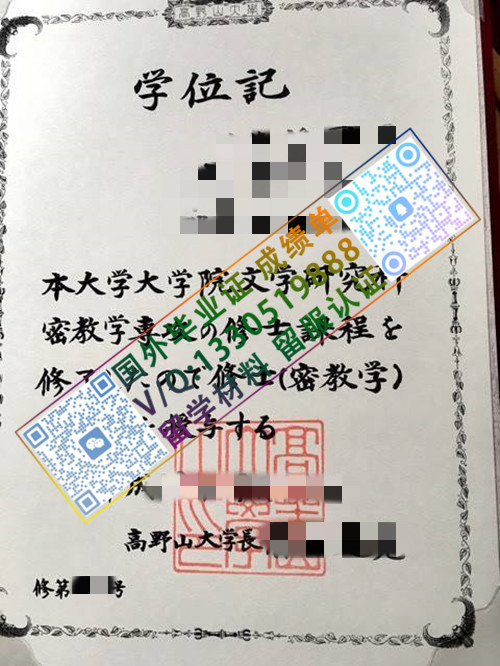 高野山大学
学位記
本大学大学院文学研究
密教学専攻の修士課程を
修 ので修士(密教学)
授与する
成
高野山大学長
修第 号
国外毕业证 成绩单
V/Q:1330519888
留学材料 留服认证